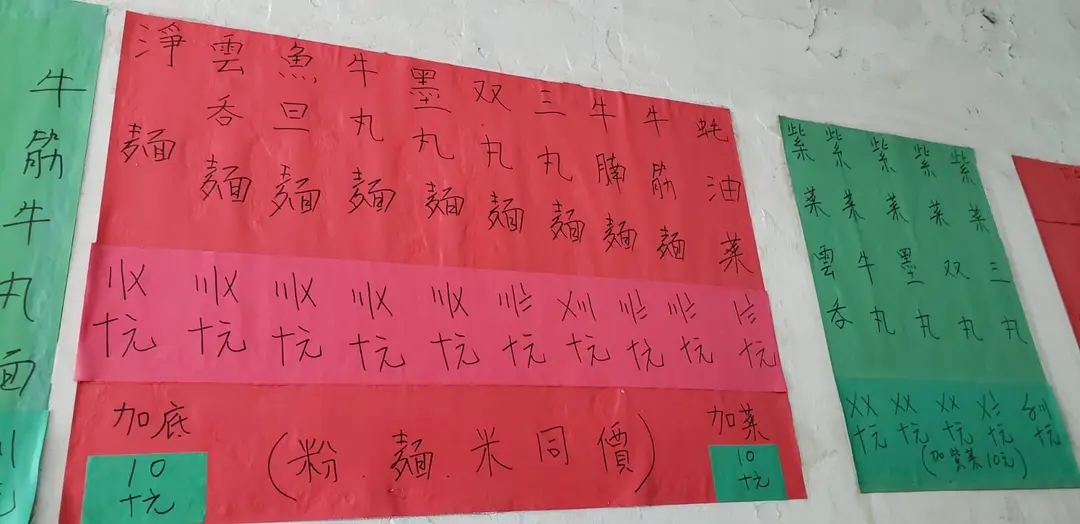 牛筋牛丸面
淨麵
雲吞麵
魚旦麵
牛丸麵
墨丸麵
双丸麵
三丸麵
牛腩麵
牛筋麵
蚝油菜
〣〤十元
〣〤十元
〣〤十元
〣〤十元
〣〤十元
十元
〤〣十元
十元
十元
十元
加底
10
十元
(粉.麵.米同價)
加菜
10
十元
紫菜雲吞
紫菜牛丸
紫菜墨丸
紫菜双丸
紫菜三丸
〤〤十元
〤〤十元
〤〤十元
十元
十元
(加紫菜10元)